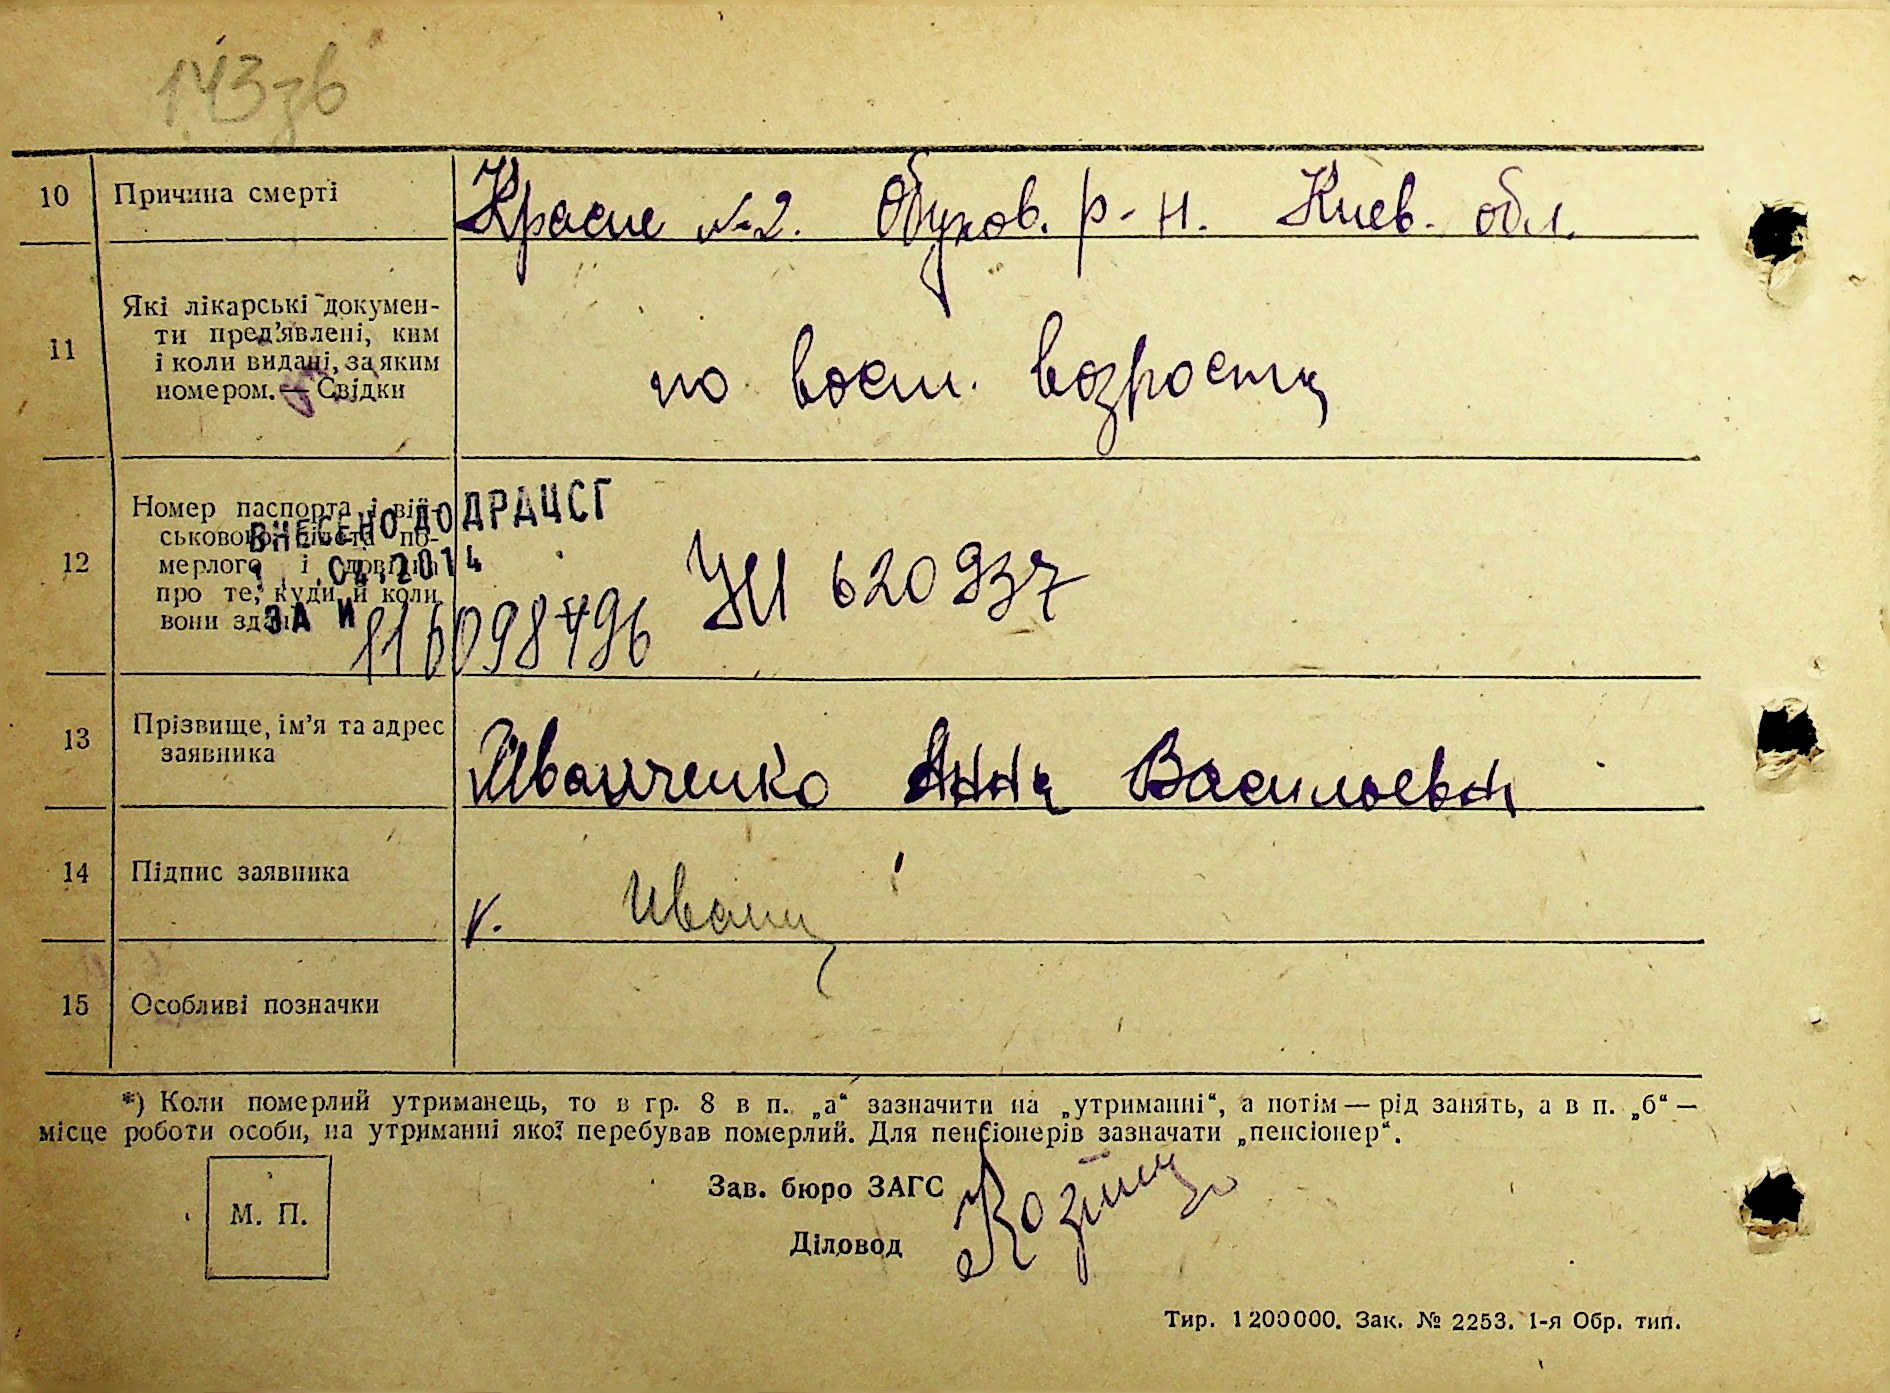 143зв
10 Причина смерті Красне №2. Обухов. р-н. Киев. обл.
11 Які лікарські документи пред'явлені, ким і коли видані, за яким номером. — Свідки
по восст. возросту
12 Номер паспорта і військового квитка померлого і довідка про те, куди й коли вони здані
ВНЕСЕНО ДО ДРАЦСГ
.04.2014
ЗА №
116098496
620937
13 Прізвище, ім'я та адрес заявника Иванченко Анна Васильевна
14 Підпис заявника V. Иванч
15 Особливі позначки
*) Коли померлий утриманець, то в гр. 8 в п. „а“ зазначити на „утриманні“, а потім — рід занять, а в п. „б“ —
місце роботи особи, на утриманні якої перебував померлий. Для пенсіонерів зазначати „пенсіонер“.
М. П.
Зав. бюро ЗАГС
Діловод
Тир. 1200000. Зак. № 2253. 1-я Обр. тип.